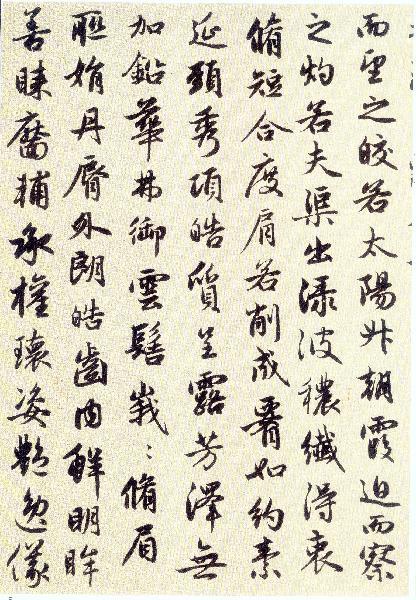 而望之皎若太陽升朝霞迫而察
之灼若夫渠出淥波穠纖得衷
脩短合度肩若削成要如約素
延頸秀項皓質呈露芳澤無
加鉛華弗御雲髻峩〻脩眉
聮娟丹脣外朗皓齒内鮮明眸
善睞靨輔承權瓌姿艷逸儀